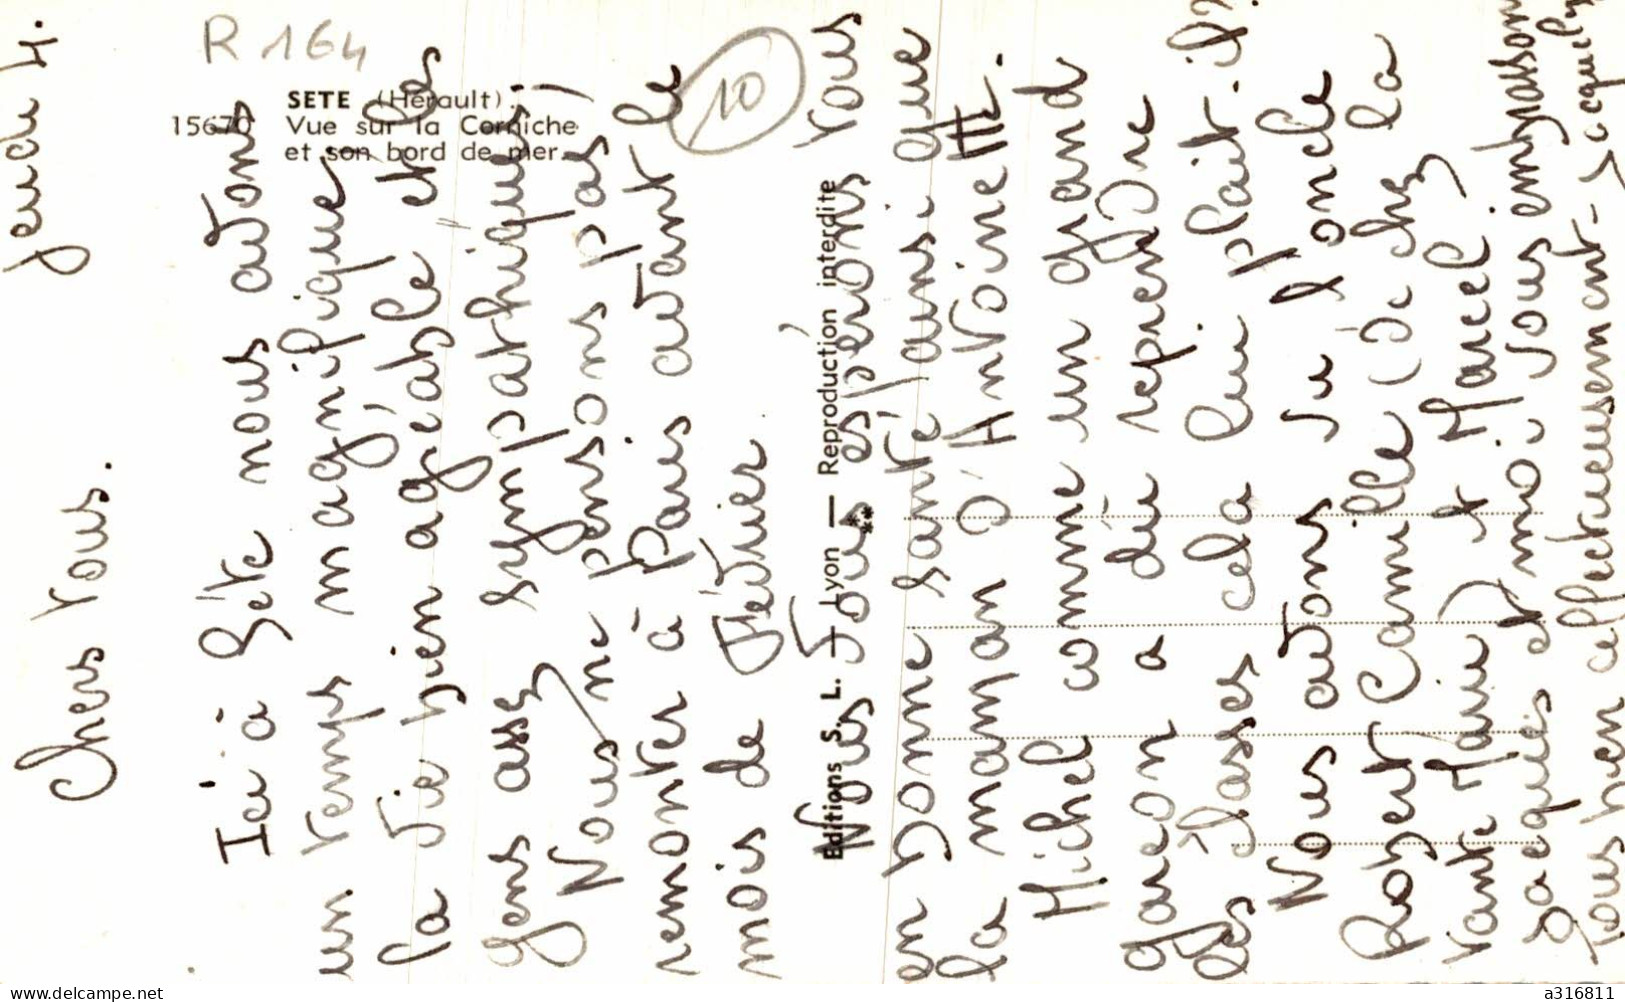 R 164
10
SETE (Hérault).
15670 Vue sur la Corniche
et son bord de mer.
Editions S. L. — Lyon — Reproduction interdite
Jeudi 4.
Chers vous.
Ici à Sète nous avons
un temps magnifique,
la vie bien agréable et les
gens assez sympathiques;
Nous ne pensons pas
remonter à Paris avant le
mois de Février.
Nous vous espérons vous
en bonne santé ainsi que
la maman d'Antoinette.
Michel comme un grand
garçon a dû reprendre
les classes cela lui plait-il?
Nous avons vu l'oncle
Robert Camille (de chez
tante Marie) & Marcel.
Jacques et moi vous embrassons
tous bien affectueusement - Jacqueline
www.delcampe.net
a316811